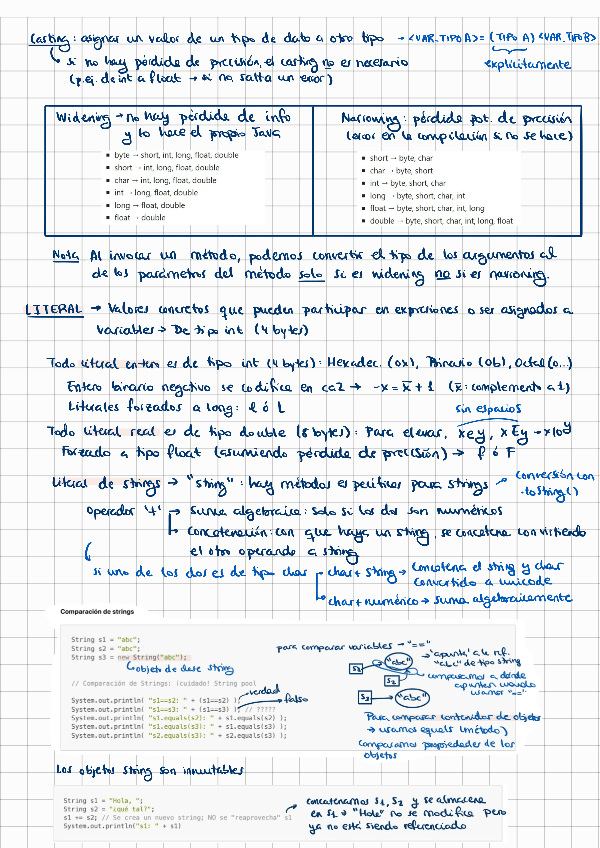 Casting: asignar un valor de un tipo de dato a otro tipo → <VAR.TIPO A> = (TIPO A) <VAR.TIPO B>
si no hay pérdida de precisión, el casting no es necesario
explícitamente
(p.ej. de int a float → si no, salta un error)
Widening → no hay pérdida de info
y lo hace el propio Java
▪ byte → short, int, long, float, double
▪ short → int, long, float, double
▪ char → int, long, float, double
▪ int → long, float, double
▪ long → float, double
▪ float → double
Narrowing: pérdida pot. de precisión
(error en la compilación si no se hace)
▪ short → byte, char
▪ char → byte, short
▪ int → byte, short, char
▪ long → byte, short, char, int
▪ float → byte, short, char, int, long
▪ double → byte, short, char, int, long, float
Nota Al invocar un método, podemos convertir el tipo de los argumentos al
de los parámetros del método solo si es widening no si es narrowing.
LITERAL → Valores concretos que pueden participar en expresiones o ser asignados a
variables → De tipo int (4 bytes)
Todo literal entero es de tipo int (4 bytes): Hexadec. (0x), Binario (0b), Octal (0...)
Entero binario negativo se codifica en ca2 → -x = x̅ + 1 (x̅: complemento a 1)
Literales forzados a long: l ó L
sin espacios
Todo literal real es de tipo double (8 bytes): Para elevar, xey, xEy → x10^y
Forzado a tipo float (asumiendo pérdida de precisión) → f ó F
Literal de strings → "string": hay métodos específicos para strings
conversión con
.toString()
Operador '+' → Suma algebraica: solo si los dos son numéricos
Concatenación: con que haya un string, se concatena convirtiendo
el otro operando a string
si uno de los dos es de tipo char
char + String → Concatena el string y char
convertido a unicode
char + numérico → Suma algebraicamente
Comparación de strings
String s1 = "abc";
String s2 = "abc";
String s3 = new String("abc");
objeto de clase String
// Comparación de Strings: ¡cuidado! String pool
verdad
falso
System.out.println( "s1==s2: " + (s1==s2) );
System.out.println( "s1==s3: " + (s1==s3) ); // ?????
System.out.println( "s1.equals(s2): " + s1.equals(s2) );
System.out.println( "s1.equals(s3): " + s1.equals(s3) );
System.out.println( "s2.equals(s3): " + s2.equals(s3) );
para comparar variables → "=="
s1
"abc"
s2
s3
"abc"
"apunta" a la ref.
"abc" de tipo string
comparamos a dónde
apuntan cuando
usamos "=="
Para comparar contenidos de objetos
→ usamos equals (método)
Comparamos propiedades de los
objetos
Los objetos String son inmutables
String s1 = "Hola, ";
String s2 = "¿qué tal?";
s1 += s2; // Se crea un nuevo string; NO se "reaprovecha" s1
System.out.println("s1: " + s1)
concatenamos s1, s2 y se almacena
en s1 → "Hola" no se modifica pero
ya no está siendo referenciado